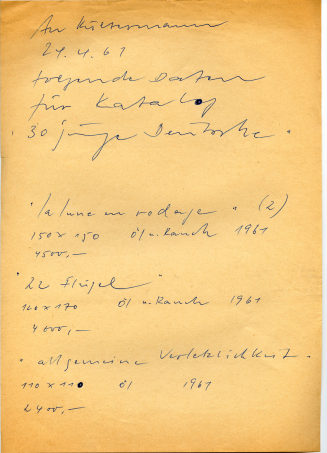 An Kultermann
24.4.61
folgende Daten
für Katalog
"30 junge Deutsche"
"la lune en rodage" (2)
150 x 150 Öl u. Rauch 1961
4500,—
"22 Flügel"
120 x 170 Öl u. Rauch 1961
4000,—
"allgemeine Verletzlichkeit"
110 x 110 Öl 1961
2400,—